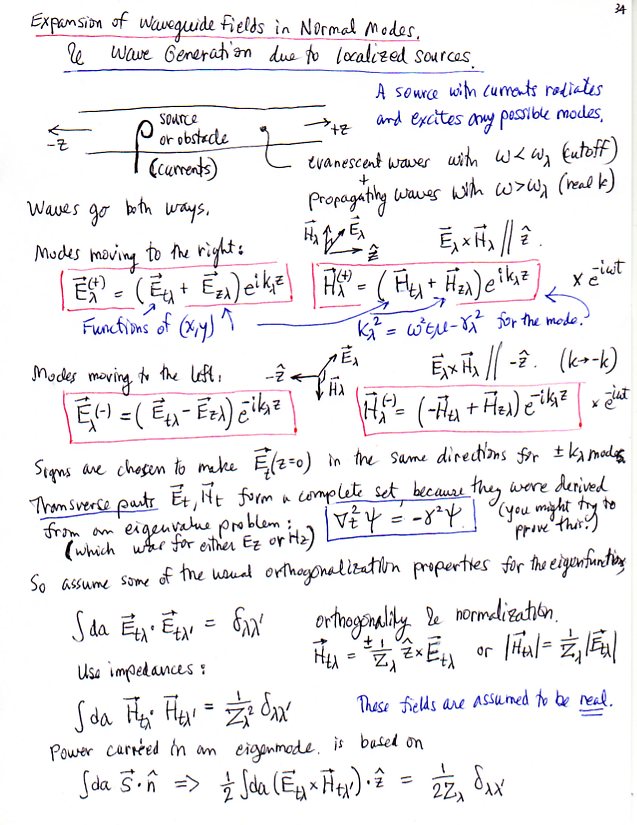 34
Expansion of Waveguide Fields in Normal Modes.
& Wave Generation due to localized sources.
A source with currents radiates
and excites any possible modes.
source
or obstacle
(currents)
-z
+z
evanescent waves with ω<ω_λ (cutoff)
+
propagating waves with ω>ω_λ (real k)
Waves go both ways.
H⃗_λ E⃗_λ ẑ E⃗_λ × H⃗_λ // ẑ.
Modes moving to the right:
E⃗_λ^(+) = (E⃗_tλ + E⃗_zλ) e^{ik_λz} H⃗_λ^(+) = (H⃗_tλ + H⃗_zλ) e^{ik_λz} × e^{-iωt}
Functions of (x,y) k_λ² = ω²εμ-γ_λ² for the mode.
Modes moving to the left: -ẑ E⃗_λ H⃗_λ E⃗_λ × H⃗_λ // -ẑ. (k→-k)
E⃗_λ^(-) = (E⃗_tλ - E⃗_zλ) e^{-ik_λz} H⃗_λ^(-) = (-H⃗_tλ + H⃗_zλ) e^{-ik_λz} × e^{-iωt}
Signs are chosen to make E⃗_t(z=0) in the same directions for ±k_λ modes.
Transverse parts E⃗_t, H⃗_t form a complete set, because they were derived
from an eigenvalue problem: ∇_t²ψ = -γ²ψ. (you might try to
(which was for either E_z or H_z) prove this!)
So assume some of the usual orthogonalization properties for the eigenfunctions,
∫da E⃗_tλ · E⃗_tλ' = δ_λλ' orthogonality & normalization.
Use impedances: H⃗_tλ = ±1/Z_λ ẑ×E⃗_tλ or |H⃗_tλ| = 1/Z_λ |E⃗_tλ|
∫da H⃗_tλ · H⃗_tλ' = 1/Z_λ² δ_λλ' These fields are assumed to be real.
Power carried in an eigenmode. is based on
∫da S⃗·n̂ => 1/2 ∫da (E⃗_tλ × H⃗_tλ')·ẑ = 1/2Z_λ δ_λλ'